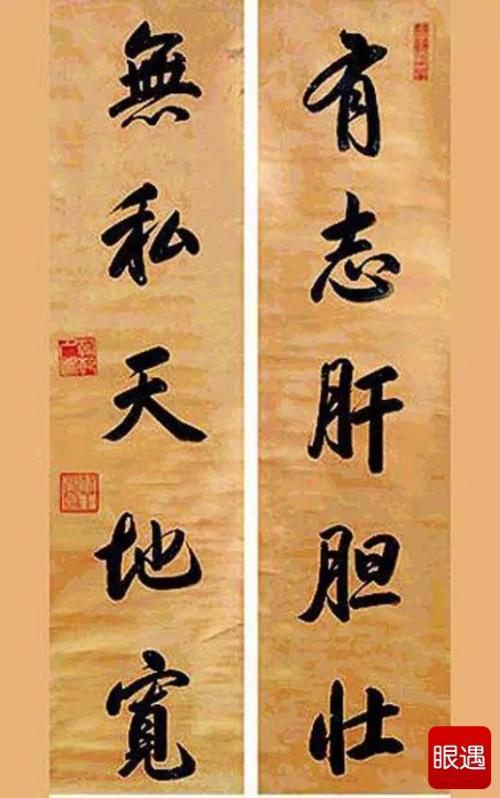 有志肝胆壮
無私天地寬
眼遇